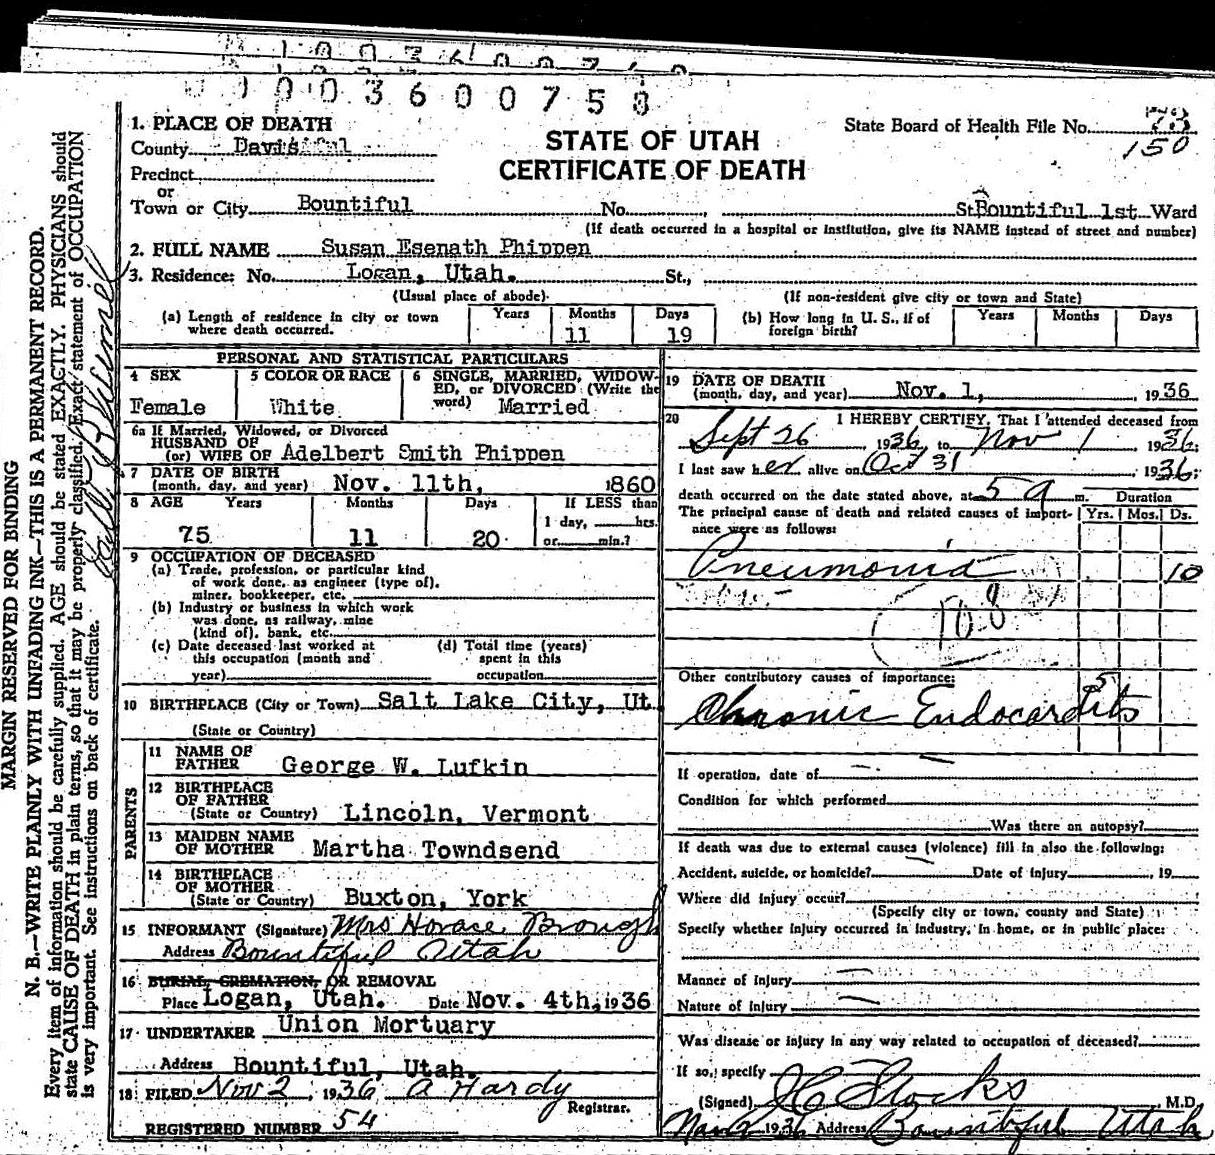 1003600750
1. PLACE OF DEATH
County Davis
Precinct
or
Town or City Bountiful No. , St. Bountiful 1st Ward
(If death occurred in a hospital or institution, give its NAME instead of street and number)
STATE OF UTAH
CERTIFICATE OF DEATH
State Board of Health File No. 73
150
2. FULL NAME Susan Esenath Phippen
3. Residence: No. Logan, Utah. St.,
(Usual place of abode) (If non-resident give city or town and State)
(a) Length of residence in city or town where death occurred. Years Months 11 Days 19
(b) How long in U. S., if of foreign birth? Years Months Days
PERSONAL AND STATISTICAL PARTICULARS
4 SEX Female
5 COLOR OR RACE White
6 SINGLE, MARRIED, WIDOWED, or DIVORCED (Write the word) Married
6a If Married, Widowed, or Divorced
HUSBAND OF
(or) WIFE OF Adelbert Smith Phippen
7 DATE OF BIRTH
(month, day, and year) Nov. 11th, 1860
8 AGE Years 75 Months 11 Days 20
If LESS than
1 day, hrs.
or min.?
9 OCCUPATION OF DECEASED
(a) Trade, profession, or particular kind
of work done, as engineer (type of).
miner, bookkeeper, etc.
(b) Industry or business in which work
was done, as railway, mine
(kind of), bank, etc.
(c) Date deceased last worked at
this occupation (month and
year)
(d) Total time (years)
spent in this
occupation
10 BIRTHPLACE (City or Town) Salt Lake City, Ut
(State or Country)
PARENTS
11 NAME OF
FATHER George W. Lufkin
12 BIRTHPLACE
OF FATHER
(State or Country) Lincoln, Vermont
13 MAIDEN NAME
OF MOTHER Martha Towndsend
14 BIRTHPLACE
OF MOTHER
(State or Country) Buxton, York
15 INFORMANT (Signature) Mrs Horace Brough
Address Bountiful Utah
16 BURIAL, CREMATION, OR REMOVAL
Place Logan, Utah. Date Nov. 4th, 1936
17 UNDERTAKER Union Mortuary
Address Bountiful, Utah.
18 FILED Nov 2, 1936 A Hardy
Registrar.
REGISTERED NUMBER 54
19 DATE OF DEATH
(month, day, and year) Nov. 1, 1936
20 I HEREBY CERTIFY, That I attended deceased from
Sept 26 1936, to Nov 1 1936;
I last saw her alive on Oct 31 1936;
death occurred on the date stated above, at 5 a m. Duration
The principal cause of death and related causes of import- Yrs. Mos. Ds.
ance were as follows:
Pneumonia 10
108
Other contributory causes of importance:
Chronic Endocarditis 5
If operation, date of
Condition for which performed
Was there an autopsy?
If death was due to external causes (violence) fill in also the following:
Accident, suicide, or homicide? Date of injury , 19
Where did injury occur?
(Specify city or town, county and State)
Specify whether injury occurred in industry, in home, or in public place:
Manner of injury
Nature of injury
Was disease or injury in any way related to occupation of deceased?
If so, specify
(Signed) J C Stocks, M.D.
Nov 2 1936 Address Bountiful Utah
MARGIN RESERVED FOR BINDING
N. B.—WRITE PLAINLY WITH UNFADING INK—THIS IS A PERMANENT RECORD.
Every item of information should be carefully supplied. AGE should be stated EXACTLY. PHYSICIANS should
state CAUSE OF DEATH in plain terms, so that it may be properly classified. Exact statement of OCCUPATION
is very important. See instructions on back of certificate.